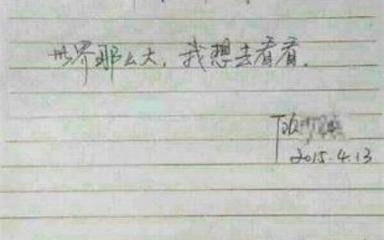 世界那么大，我想去看看。
2015.4.13